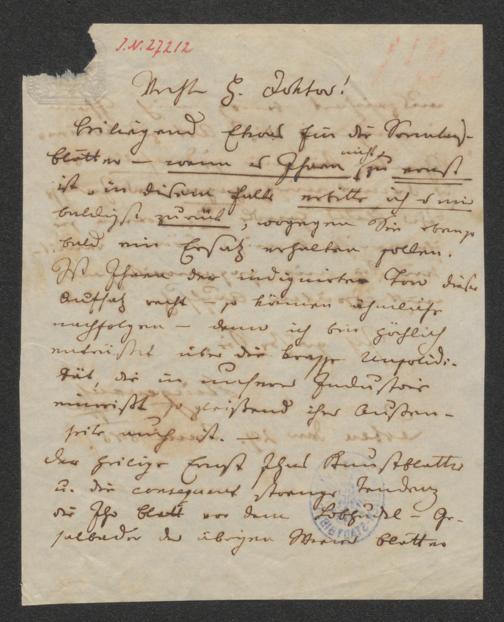 J.N. 27212
Verehrt. H. Doktor!
Beiliegend Etwas für die Sonntags-
blätter – wenn es Ihnen nicht zu ernst
ist, in diesem Falle erbitte ich es mir
baldigst zurück, wogegen Sie eben so
bald ein Ersatz erhalten sollen.
Ist Ihnen der indignirte Ton dieses
Aufsatz recht – so können ähnliche
nachfolgen – denn ich bin höchlich
entrüstet über die krasse Unsolidi-
tät, die in unserer Industrie
einreißt so gleißend ihre Außen-
seite auch ist. –
Der heilige Ernst Ihres Kunstblattes
u. die consequent strenge Tendenz
die Ihr Blatt vor dem Lobhudel-Ge-
der übrigen Wiener Blätter